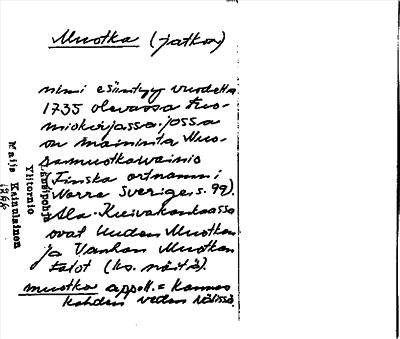 Muotka (jatkoa)
nimi esiintyy vuodelta
1735 olevassa tuo-
miokirjassa, jossa
on maininta Muo-
samuotkawainio
(Finska ortnamn i
Norra Sverige, s. 99).
Ala-Kuivakankaassa
ovat Uuden Muotkan
ja Vanhan Muotkan
talot (ks. näitä).
muotka appell. = kannas
kahden veden välissä.
Länsipohja
Ylitornio
Maija Kainulainen
1966